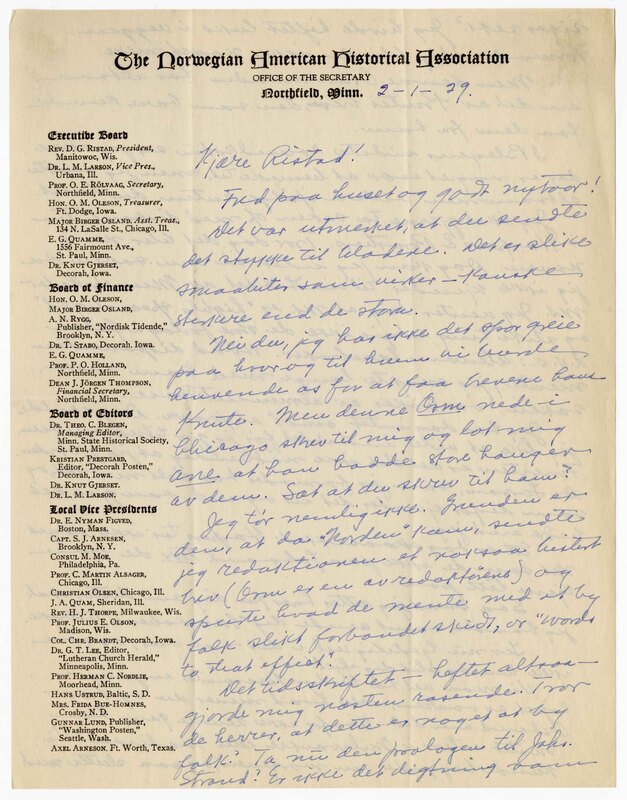 The Norwegian American Historical Association
OFFICE OF THE SECRETARY
Northfield, Minn. 2-1-29.
Executive Board
REV. D. G. RISTAD, President,
Manitowoc, Wis.
DR. L. M. LARSON, Vice Pres.,
Urbana, Ill.
PROF. O. E. RÖLVAAG, Secretary,
Northfield, Minn.
HON. O. M. OLESON, Treasurer,
Ft. Dodge, Iowa.
MAJOR BIRGER OSLAND, Asst. Treas.,
134 N. LaSalle St., Chicago, Ill.
E. G. QUAMME,
1556 Fairmount Ave.,
St. Paul, Minn.
DR. KNUT GJERSET,
Decorah, Iowa.
Board of Finance
HON. O. M. OLESON,
MAJOR BIRGER OSLAND,
A. N. RYGG,
Publisher, "Nordisk Tidende,"
Brooklyn, N. Y.
DR. T. STABO, Decorah. Iowa.
E. G. QUAMME,
PROF. P. O. HOLLAND,
Northfield, Minn.
DEAN J. JÖRGEN THOMPSON,
Financial Secretary,
Northfield, Minn.
Board of Editors
DR. THEO. C. BLEGEN,
Managing Editor,
Minn. State Historical Society,
St. Paul, Minn.
KRISTIAN PRESTGARD,
Editor, "Decorah Posten,"
Decorah, Iowa.
DR. KNUT GJERSET.
DR. L. M. LARSON.
Local Vice Presidents
DR. E. NYMAN FIGVED,
Boston, Mass.
CAPT. S. J. ARNESEN,
Brooklyn, N. Y.
CONSUL M. MOE,
Philadelphia, Pa.
PROF. C. MARTIN ALSAGER,
Chicago, Ill.
CHRISTIAN OLSEN, Chicago, Ill.
J. A. QUAM, Sheridan, Ill.
REV. H. J. THORPE, Milwaukee, Wis.
PROF. JULIUS E. OLSON,
Madison, Wis.
COL. CHR. BRANDT, Decorah, Iowa.
DR. G. T. LEE, Editor,
"Lutheran Church Herald,"
Minneapolis, Minn.
PROF. HERMAN C. NORDLIE,
Moorhead, Minn.
HANS USTRUD, Baltic, S. D.
MRS. FRIDA BUE-HOMNES,
Crosby, N. D.
GUNNAR LUND, Publisher,
"Washington Posten,"
Seattle, Wash.
AXEL ARNESON. Ft. Worth, Texas.
Kjære Ristad!
Fred paa huset og godt nyttaar!
Det var utmerket, at du sendte
det stykke til bladene. Det er slike
smaabiter som virker - kanske
sterkere end de store.
Nei du, jeg har ikke det spor greie
paa hvor og til hvem vi burde
henvende os for at faa brevene hans
Knute. Men denne Orm nede i
Chicago skrev til mig og lot mig
ane at han hadde store hanger
av dem. Sæt at du skrev til ham?
Jeg tør nemlig ikke. Grunden er
den, at da "Norden" kam, sendte
jeg redaktionen et noksaa bistert
brev (Orm er en av redaktørene) og
spurte hvad de mente med at by
folk slikt forbandet skidt, or "words
to that effect".
Det tidsskriftet - heftet altsaa -
gjorde mig næsten rasende. Tror
de herrer, at dette er noget at by
folk? Ta nu den prologen til Johs.
Strand? Er ikke det digtning som